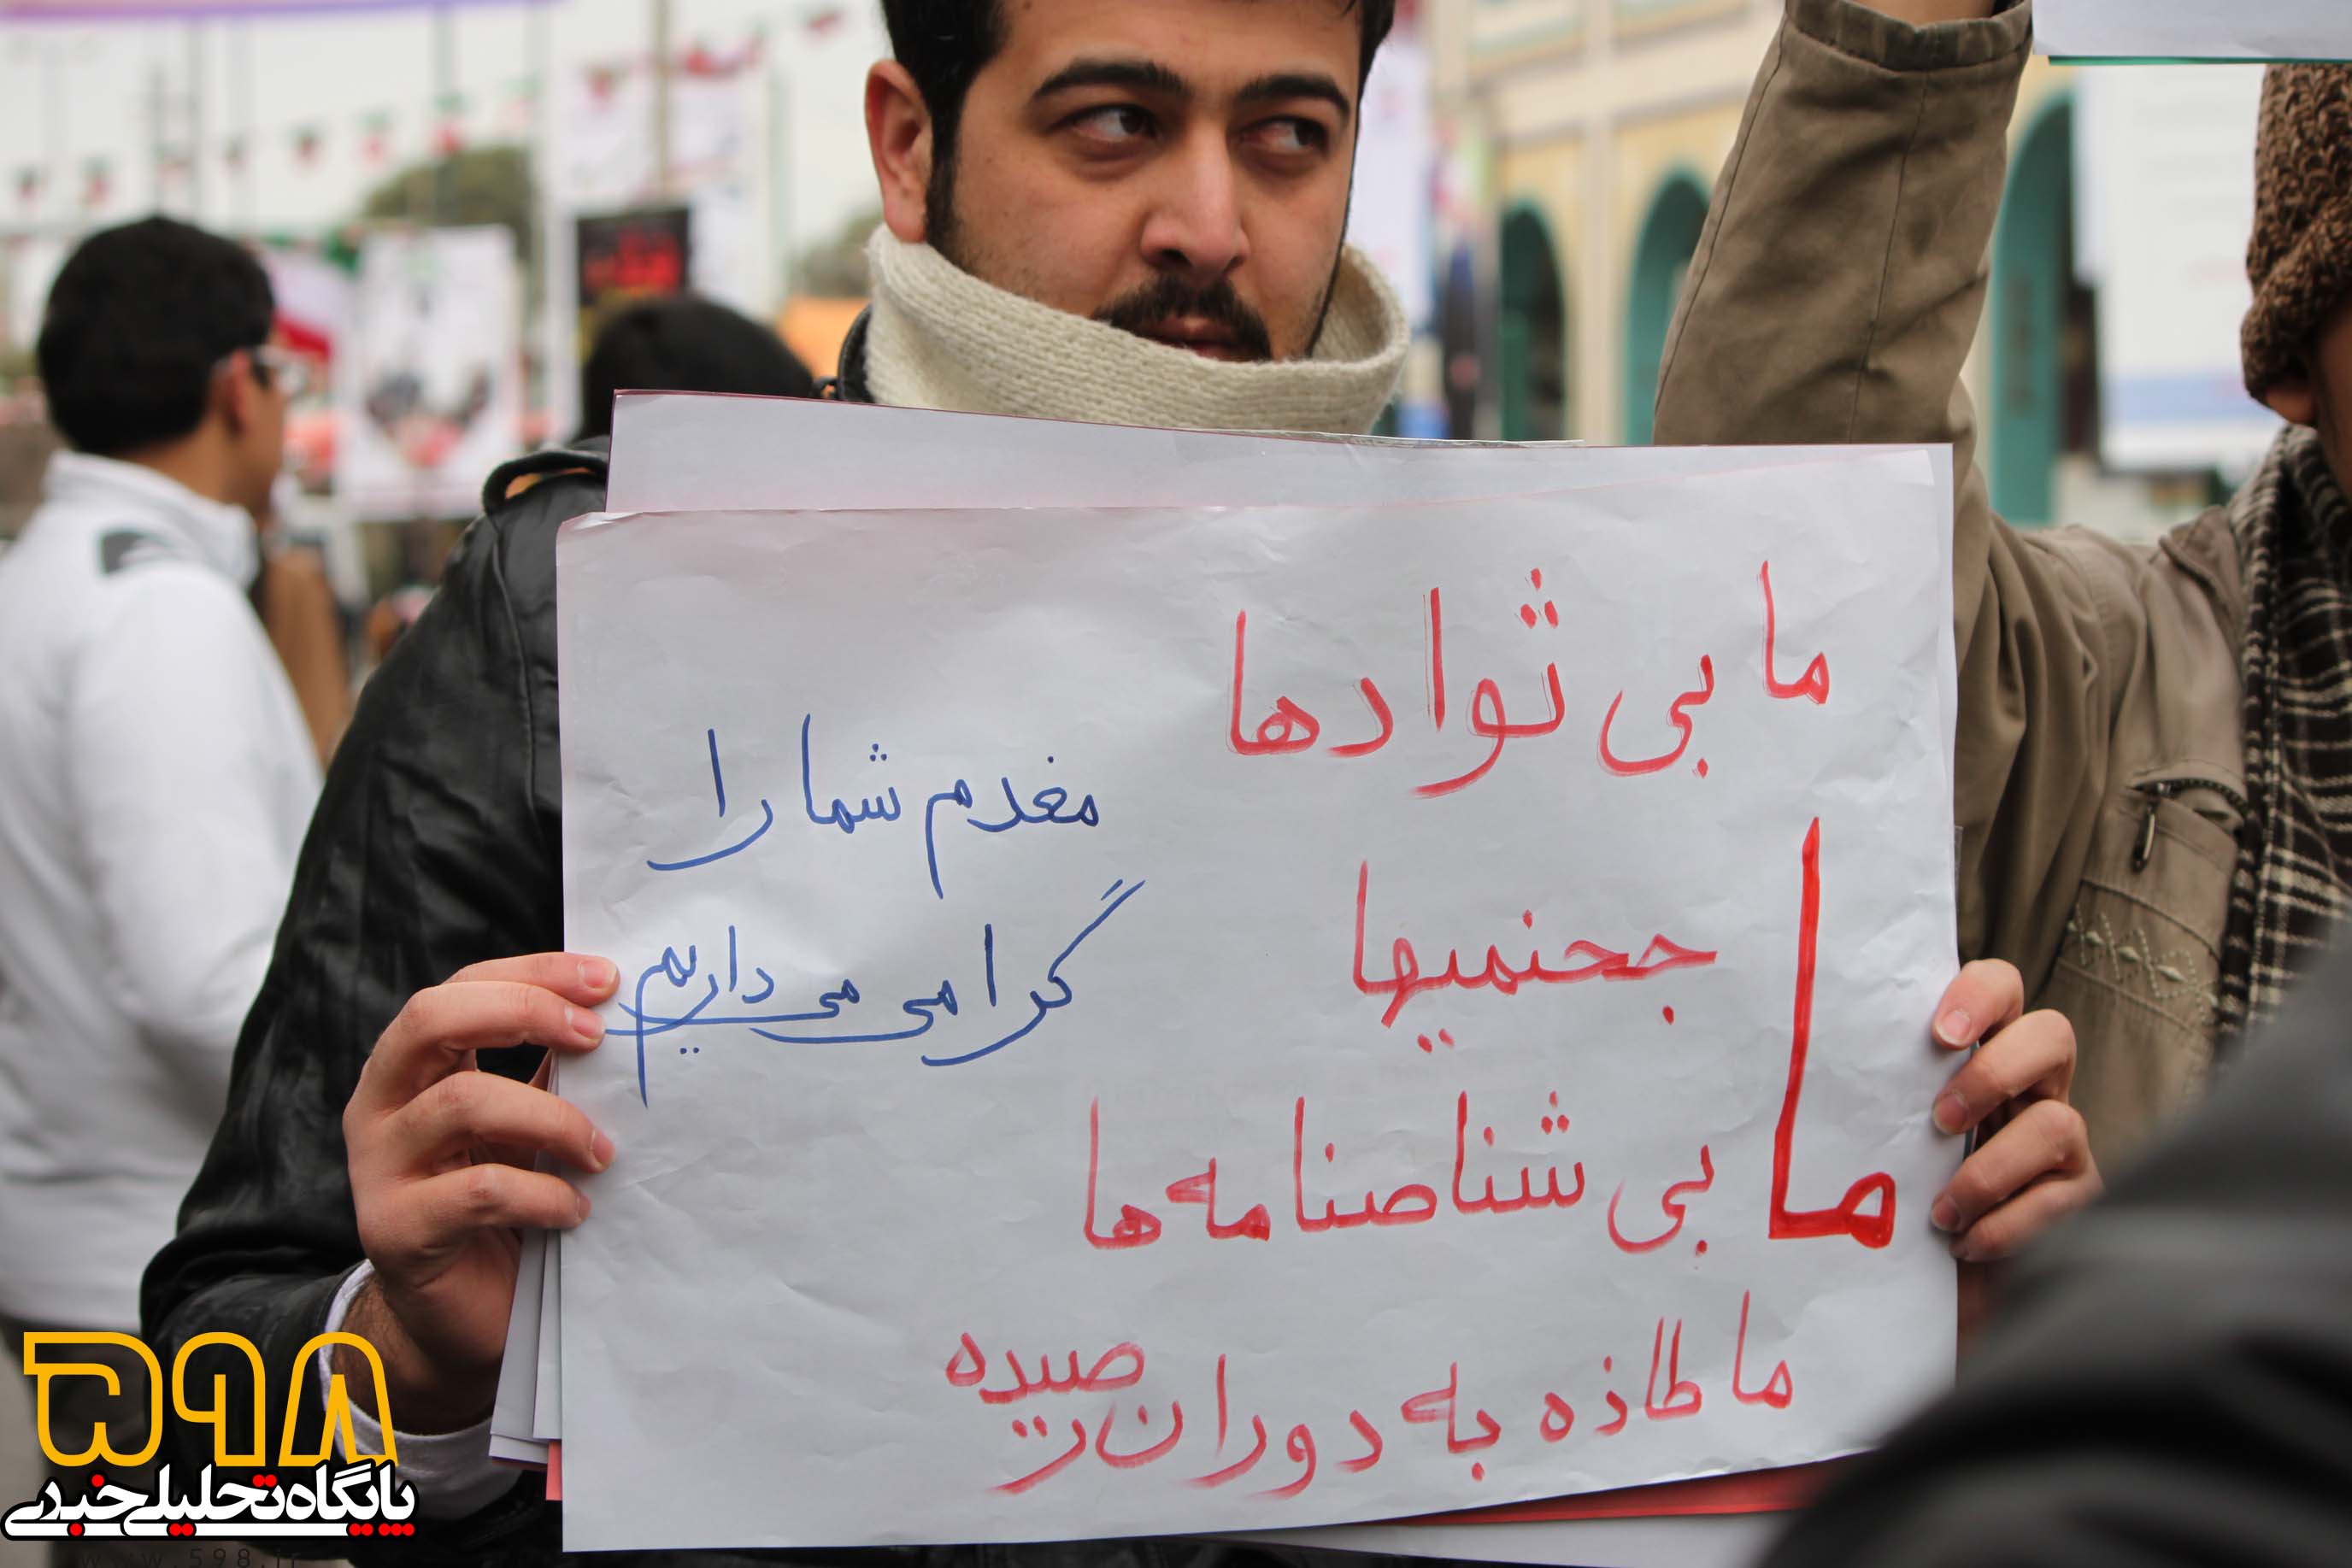 ما بی ثوادها
ما
جحنمیها
بی شناصنامه ها
ما طاذه به دوران ریصیده
مغدم شما را
گرامی می داریم
۵۹۸
پایگاه تحلیلی خبری
www.598.ir